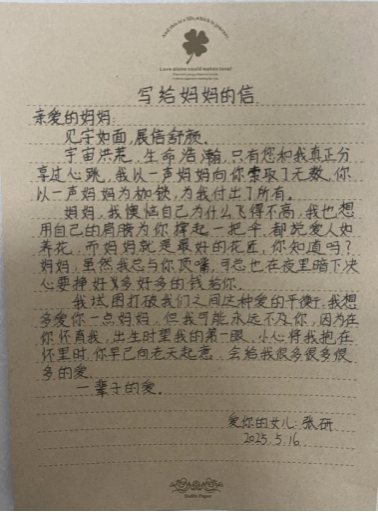 And this is a life, which is
Love alone could waken love!
写给妈妈的信
亲爱的妈妈:
见字如面,展信舒颜。
宇宙洪荒,生命浩瀚,只有您和我真正分
享过心跳,我以一声妈妈向你索取了无数,你
以一声妈妈为枷锁,为我付出了所有。
妈妈,我懊恼自己为什么飞得不高,我也想
用自己的肩膀为你撑起一把伞,都说爱人如
养花,而妈妈就是最好的花匠,你知道吗?
妈妈,虽然我总与你顶嘴,可总也在夜里暗下决
心要挣好多好多的钱给你。
我试图打破我们之间这种爱的平衡,我想
多爱你一点妈妈,但我可能永远不及你,因为在
你怀有我,出生时望我的第一眼,小心将我抱在
怀里时,你早已向老天起意,会给我很多很多很
多的爱。
一辈子的爱。
爱你的女儿:张研
2025.5.16